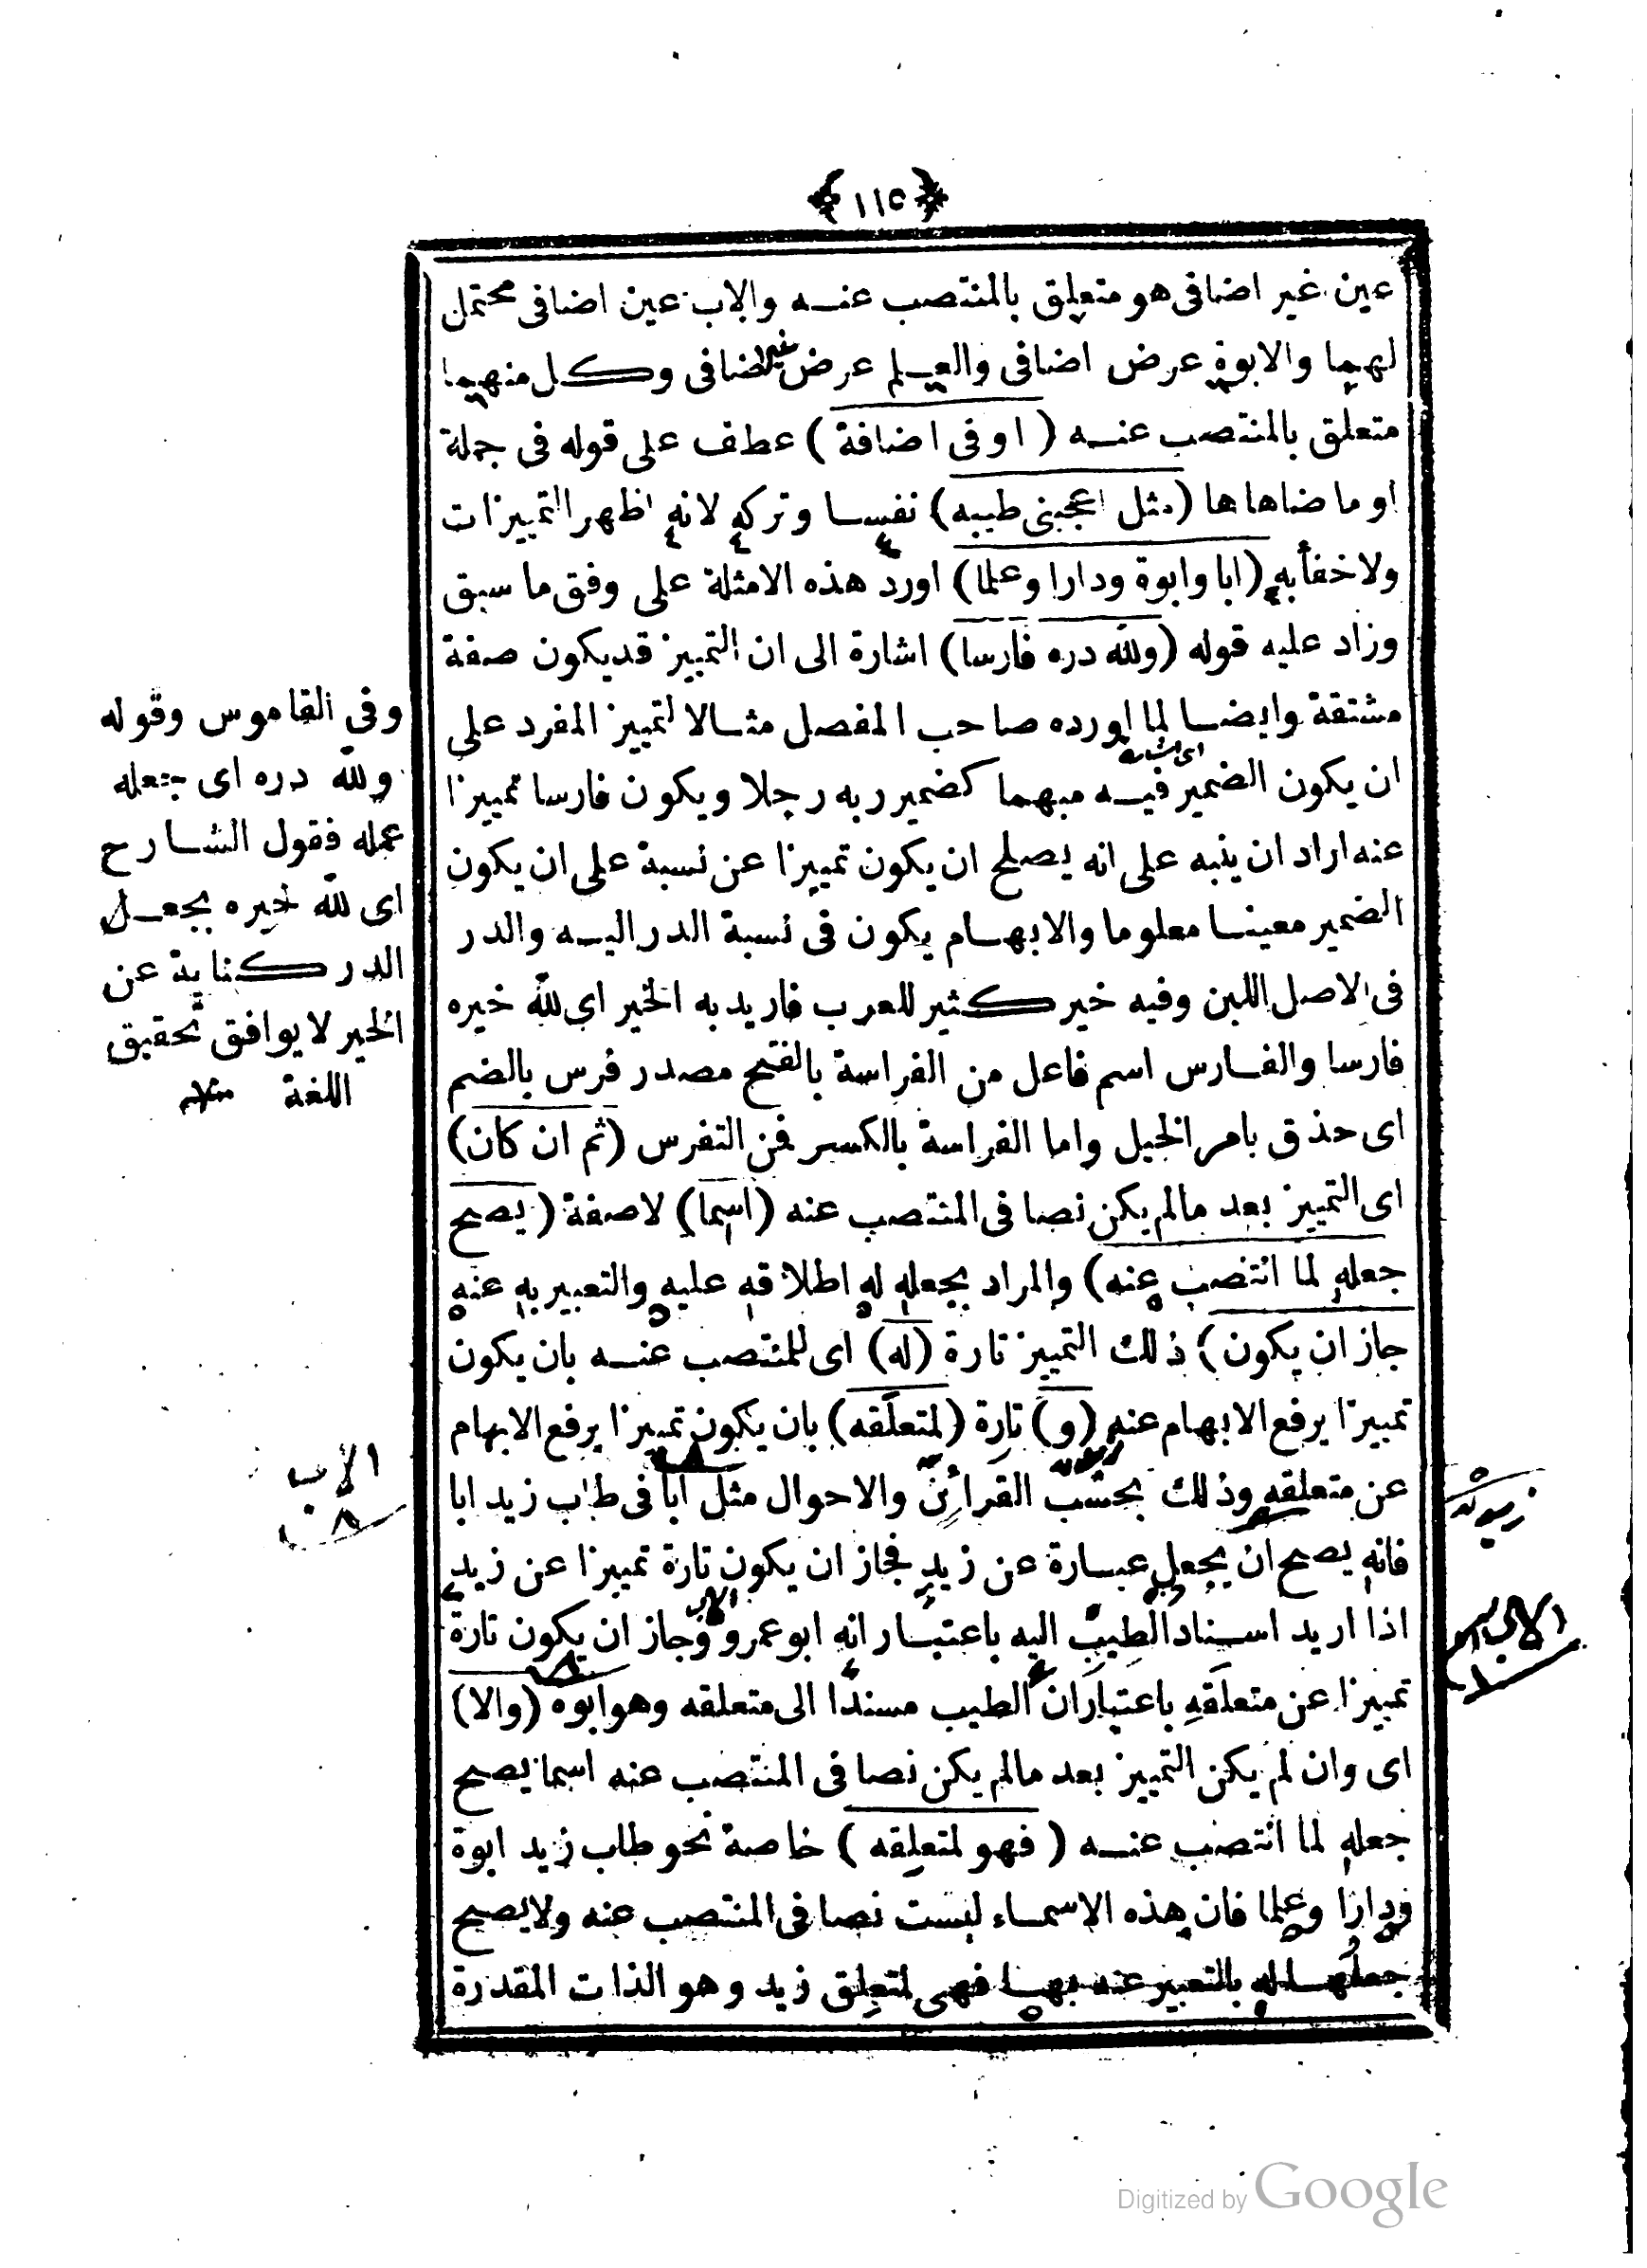 ١١٥
عين غير اضافى هو متعلق بالمنتصب عنه والاب عين اضافى محتمل
لهما والابوة عرض اضافى والعلم عرض غير اضافى وكل منهما
متعلق بالمنتصب عنه (او فى اضافة) عطف على قوله فى جملة
او ما ضاهاها (مثل اعجبنى طيبه) نفسا وتركه لانه اظهر التمييزات
ولا خفأ به (ابا وابوة ودارا وعلما) اورد هذه الامثلة على وفق ما سبق
وزاد عليه قوله (ولله دره فارسا) اشارة الى ان التمييز قد يكون صفة
مشتقة وايضا لما اورده صاحب المفصل مثالا لتمييز المفرد على
ان يكون الضمير فيه مبهما كضمير ربه رجلا ويكون فارسا تمييزا
عنه اراد ان ينبه على انه يصلح ان يكون تمييزا عن نسبة على ان يكون
الضمير معينا معلوما والابهام يكون فى نسبة الدر اليه والدر
فى الاصل اللبن وفيه خير كثير للعرب فاريد به الخير اى لله خيره
فارسا والفارس اسم فاعل من الفراسة بالفتح مصدر فرس بالضم
اى حذق بامر الخيل واما الفراسة بالكسر فمن التفرس (ثم ان كان)
اى التمييز بعد مالم يكن نصا فى المنتصب عنه (اسما) لا صفة (يصح
جعله لما انتصب عنه) والمراد بجعله له اطلاقه عليه والتعبير به عنه
جاز ان يكون) ذلك التمييز تارة (له) اى للمنتصب عنه بان يكون
تمييزا يرفع الابهام عنه (و) تارة (لمتعلقه) بان يكون تمييزا يرفع الابهام
عن متعلقه وذلك بحسب القرائن والاحوال مثل ابا فى طاب زيد ابا
فانه يصح ان يجعل عبارة عن زيد فجاز ان يكون تارة تمييزا عن زيد
اذا اريد اسناد الطيب اليه باعتبار انه ابو عمرو وجاز ان يكون تارة
تمييزا عن متعلقه باعتبار ان الطيب مسندا الى متعلقه وهو ابوه (والا)
اى وان لم يكن التمييز بعد مالم يكن نصا فى المنتصب عنه اسما يصح
جعله لما انتصب عنه (فهو لمتعلقه) خاصة نحو طاب زيد ابوة
ودارا وعلما فان هذه الاسماء ليست نصا فى المنتصب عنه ولا يصح
جعلها له بالتعبير عنه بها فهى لمتعلق زيد وهو الذات المقدرة
وفى القاموس وقوله
ولله دره اى
عمله فقول الشارح
اى لله خيره بجعل
الدر كناية عن
الخير لا يوافق تحقيق
اللغة
الاب
Digitized by Google